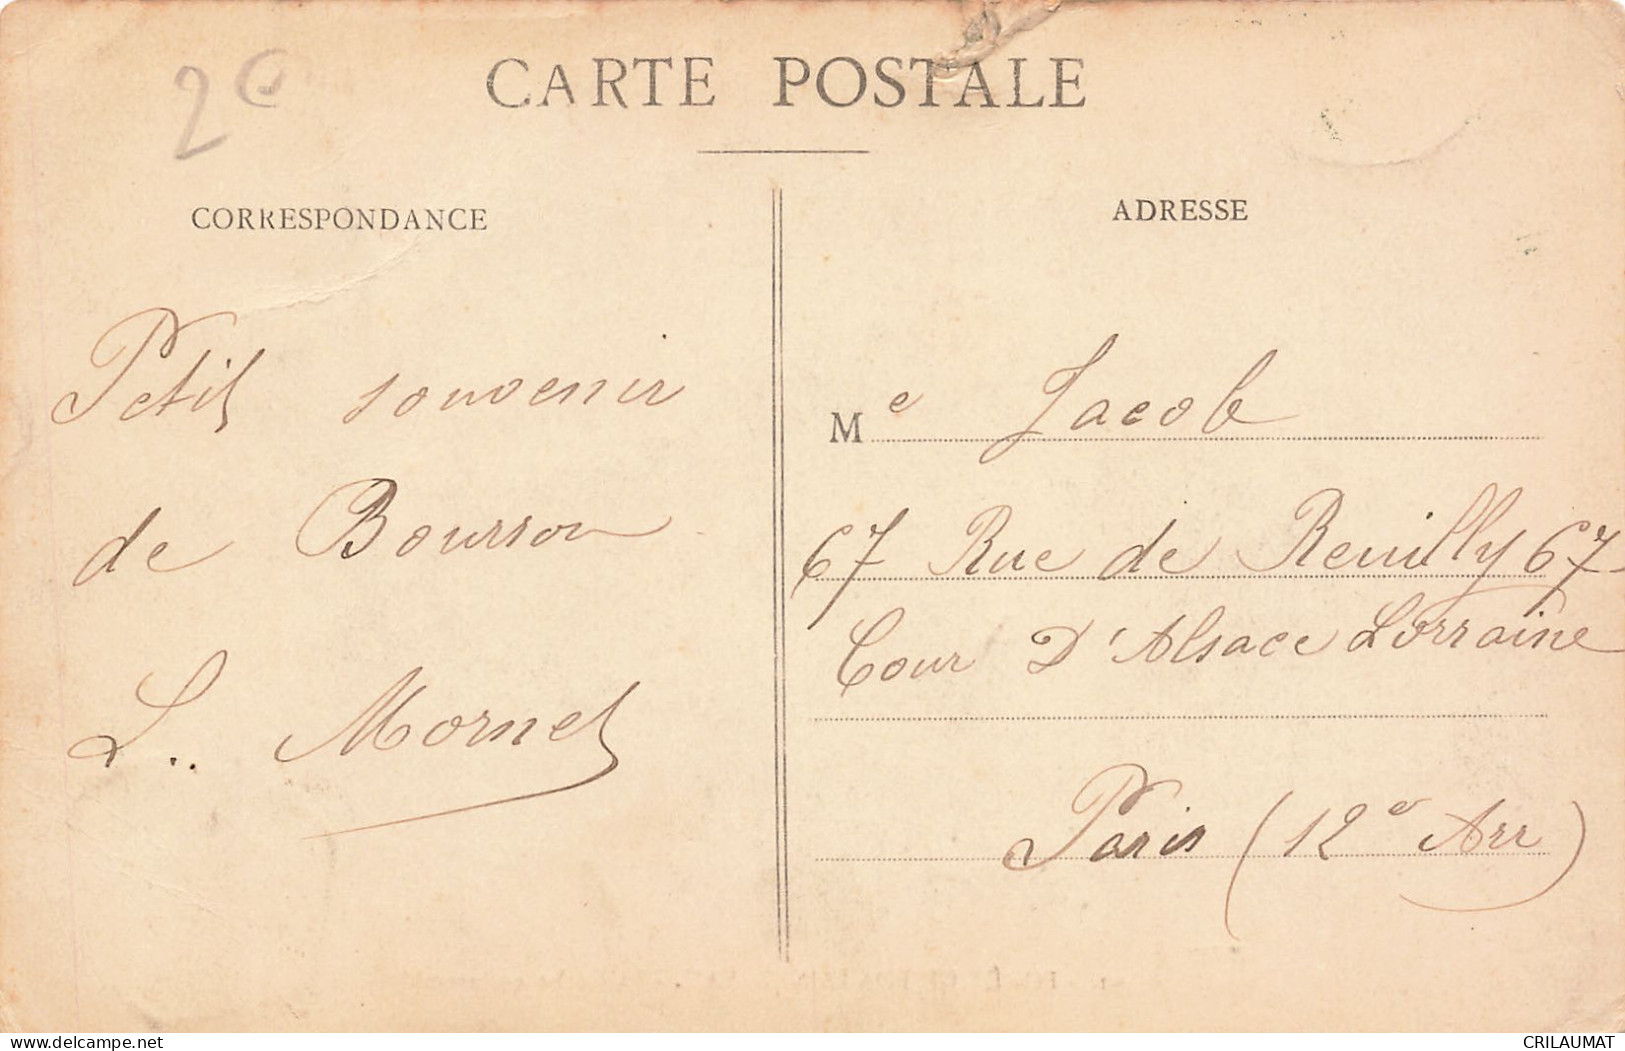 CARTE POSTALE
CORRESPONDANCE
Petit souvenir
de Bourron
L.. Mornet
ADRESSE
Me Jacob
67 Rue de Reuilly 67
Cour D'Alsace Lorraine
Paris (12e Arr)
www.delcampe.net
CRILAUMAT